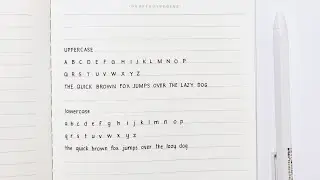 UPPERCASE
A B C D E F G H I J K L M N O P
Q R S T U V W X Y Z
THE QUICK BROWN FOX JUMPS OVER THE LAZY DOG
lowercase
a b c d e f g h i j k l m n o p
q r s t u v w x y z
the quick brown fox jumps over the lazy dog